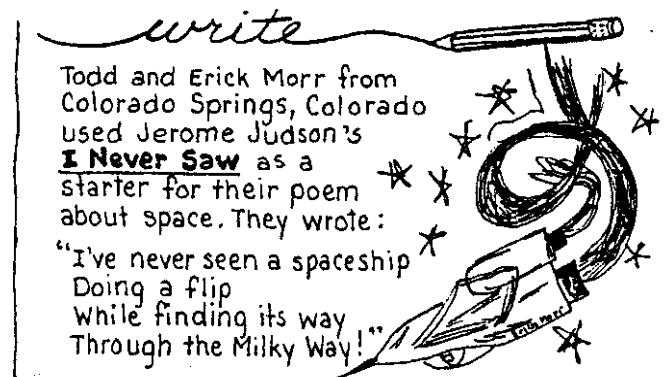 write
Todd and Erick Morr from
Colorado Springs, Colorado
used Jerome Judson's
I Never Saw as a
starter for their poem
about space. They wrote:
"I've never seen a spaceship
Doing a flip
While finding its way
Through the Milky Way!"